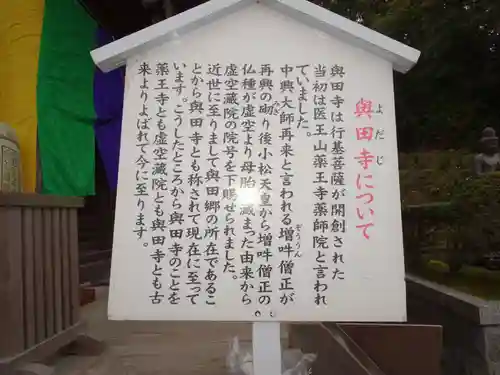 與田寺について
よだじ
與田寺は行基菩薩が開創された
当初は医王山薬王寺薬師院と言われ
ていました。
中興大師再来と言われる増吽僧正が
ぞううん
再興の砌り後小松天皇から増吽僧正の
みぎ
仏種が虚空より母胎に滅まった由来から
虚空蔵院の院号を下賜せられました。
近世に至りまして與田郷の所在であるこ
とから與田寺とも称されて現在に至って
います。こうしたところから與田寺のことを
薬王寺とも虚空蔵院とも與田寺とも古
来よりよばれて今に至ります。